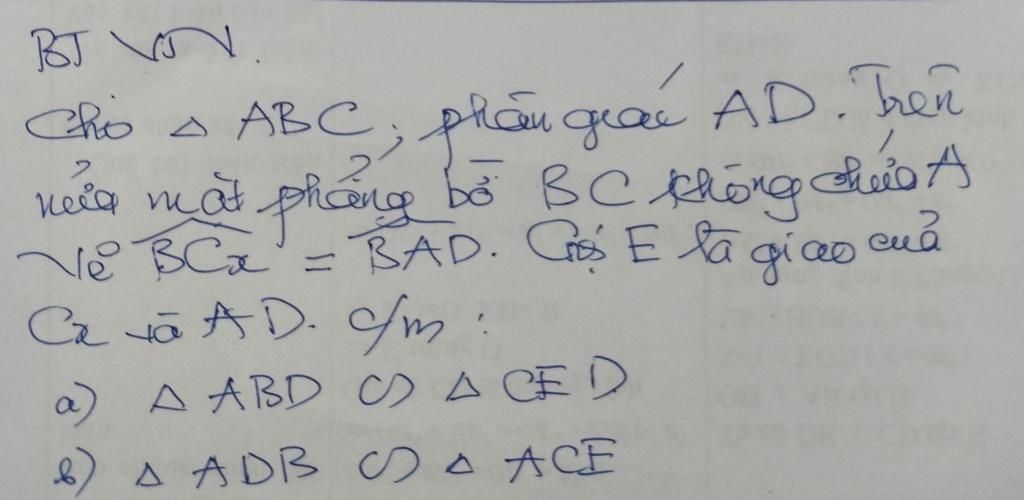 BT VN.
Cho △ ABC, phân giác AD. Trên
nửa mặt phẳng bờ BC không chứa A
vẽ BCx = BAD. Gọi E là giao của
Cx và AD. c/m:
a) △ ABD ∽ △ CED
b) △ ADB ∽ △ ACE